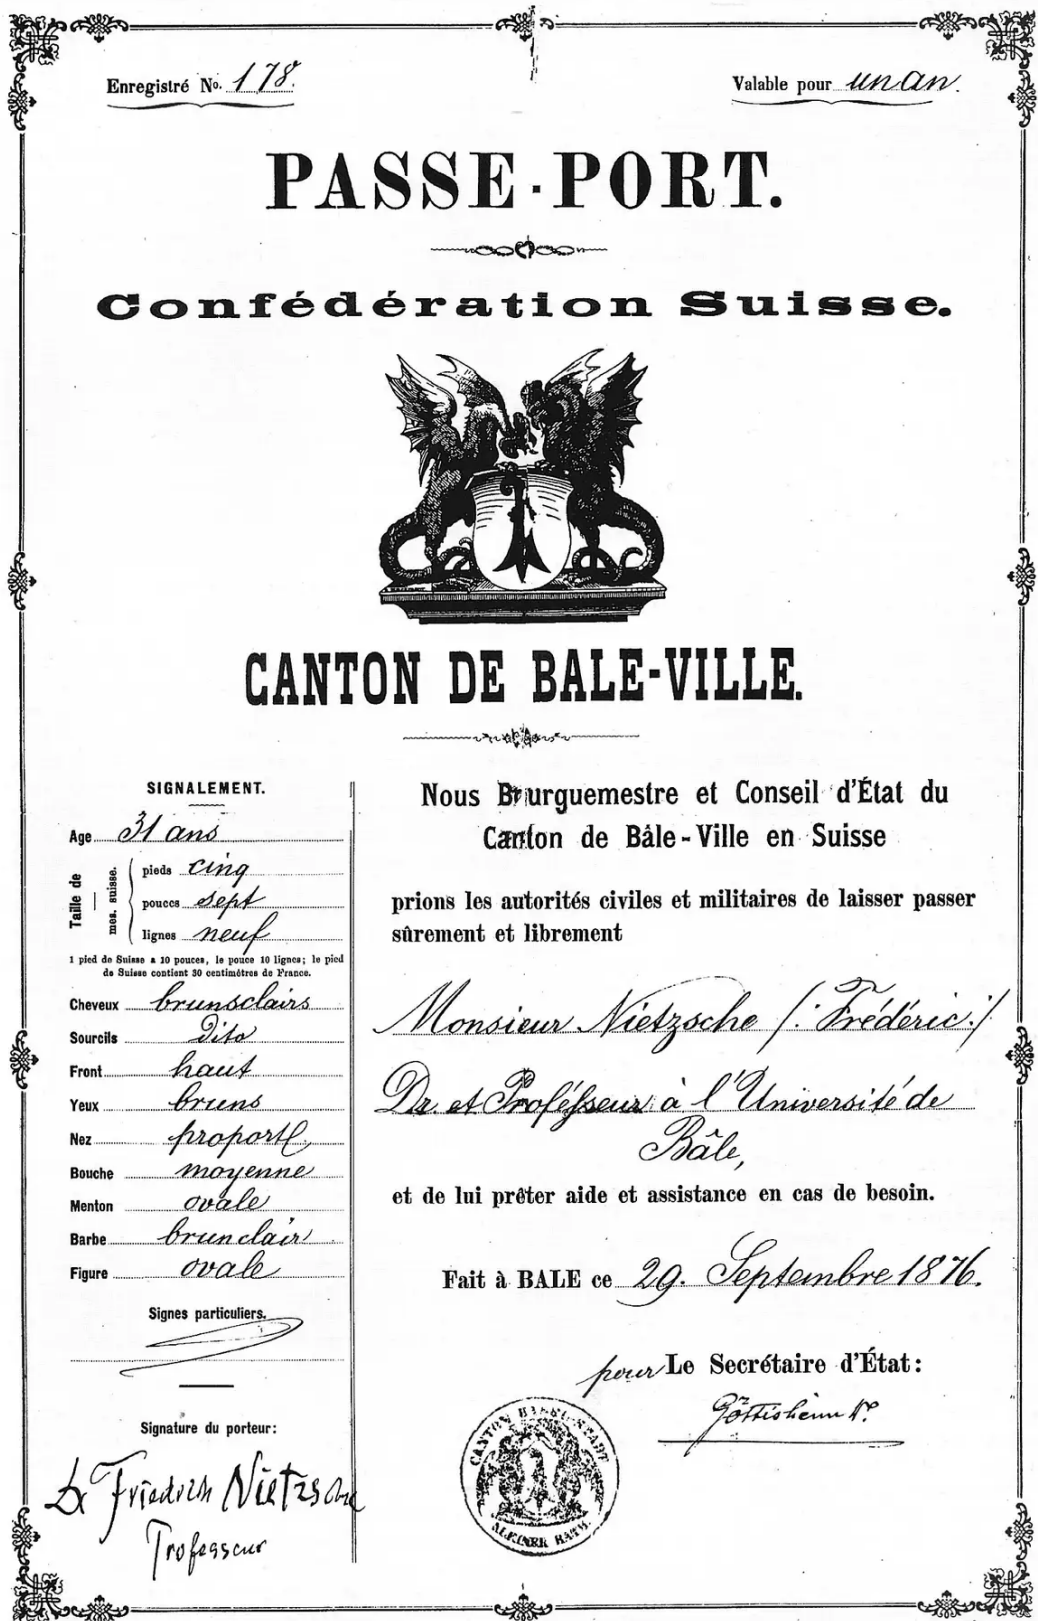 Enregistré No. 178.
Valable pour un an.
PASSE-PORT.
Confédération Suisse.
CANTON DE BALE-VILLE.
SIGNALEMENT.
Age 31 ans
Taille de
mes. suisse.
pieds cinq
pouces sept
lignes neuf
1 pied de Suisse a 10 pouces, le pouce 10 lignes; le pied
de Suisse contient 30 centimètres de France.
Cheveux brunsclairs
Sourcils dito
Front haut
Yeux bruns
Nez proport.
Bouche moyenne
Menton ovale
Barbe brunclair
Figure ovale
Signes particuliers.
Signature du porteur:
Dr Friedrich Nietzsche
Professeur
Nous Bourguemestre et Conseil d'État du
Canton de Bâle-Ville en Suisse
prions les autorités civiles et militaires de laisser passer
sûrement et librement
Monsieur Nietzsche (: Frédéric :)
Dr et Professeur à l'Université de
Bâle,
et de lui prêter aide et assistance en cas de besoin.
Fait à BALE ce 29. Septembre 1876.
pour Le Secrétaire d'État:
Göttisheim
CANTON BASEL-STADT
KLEINER RATH